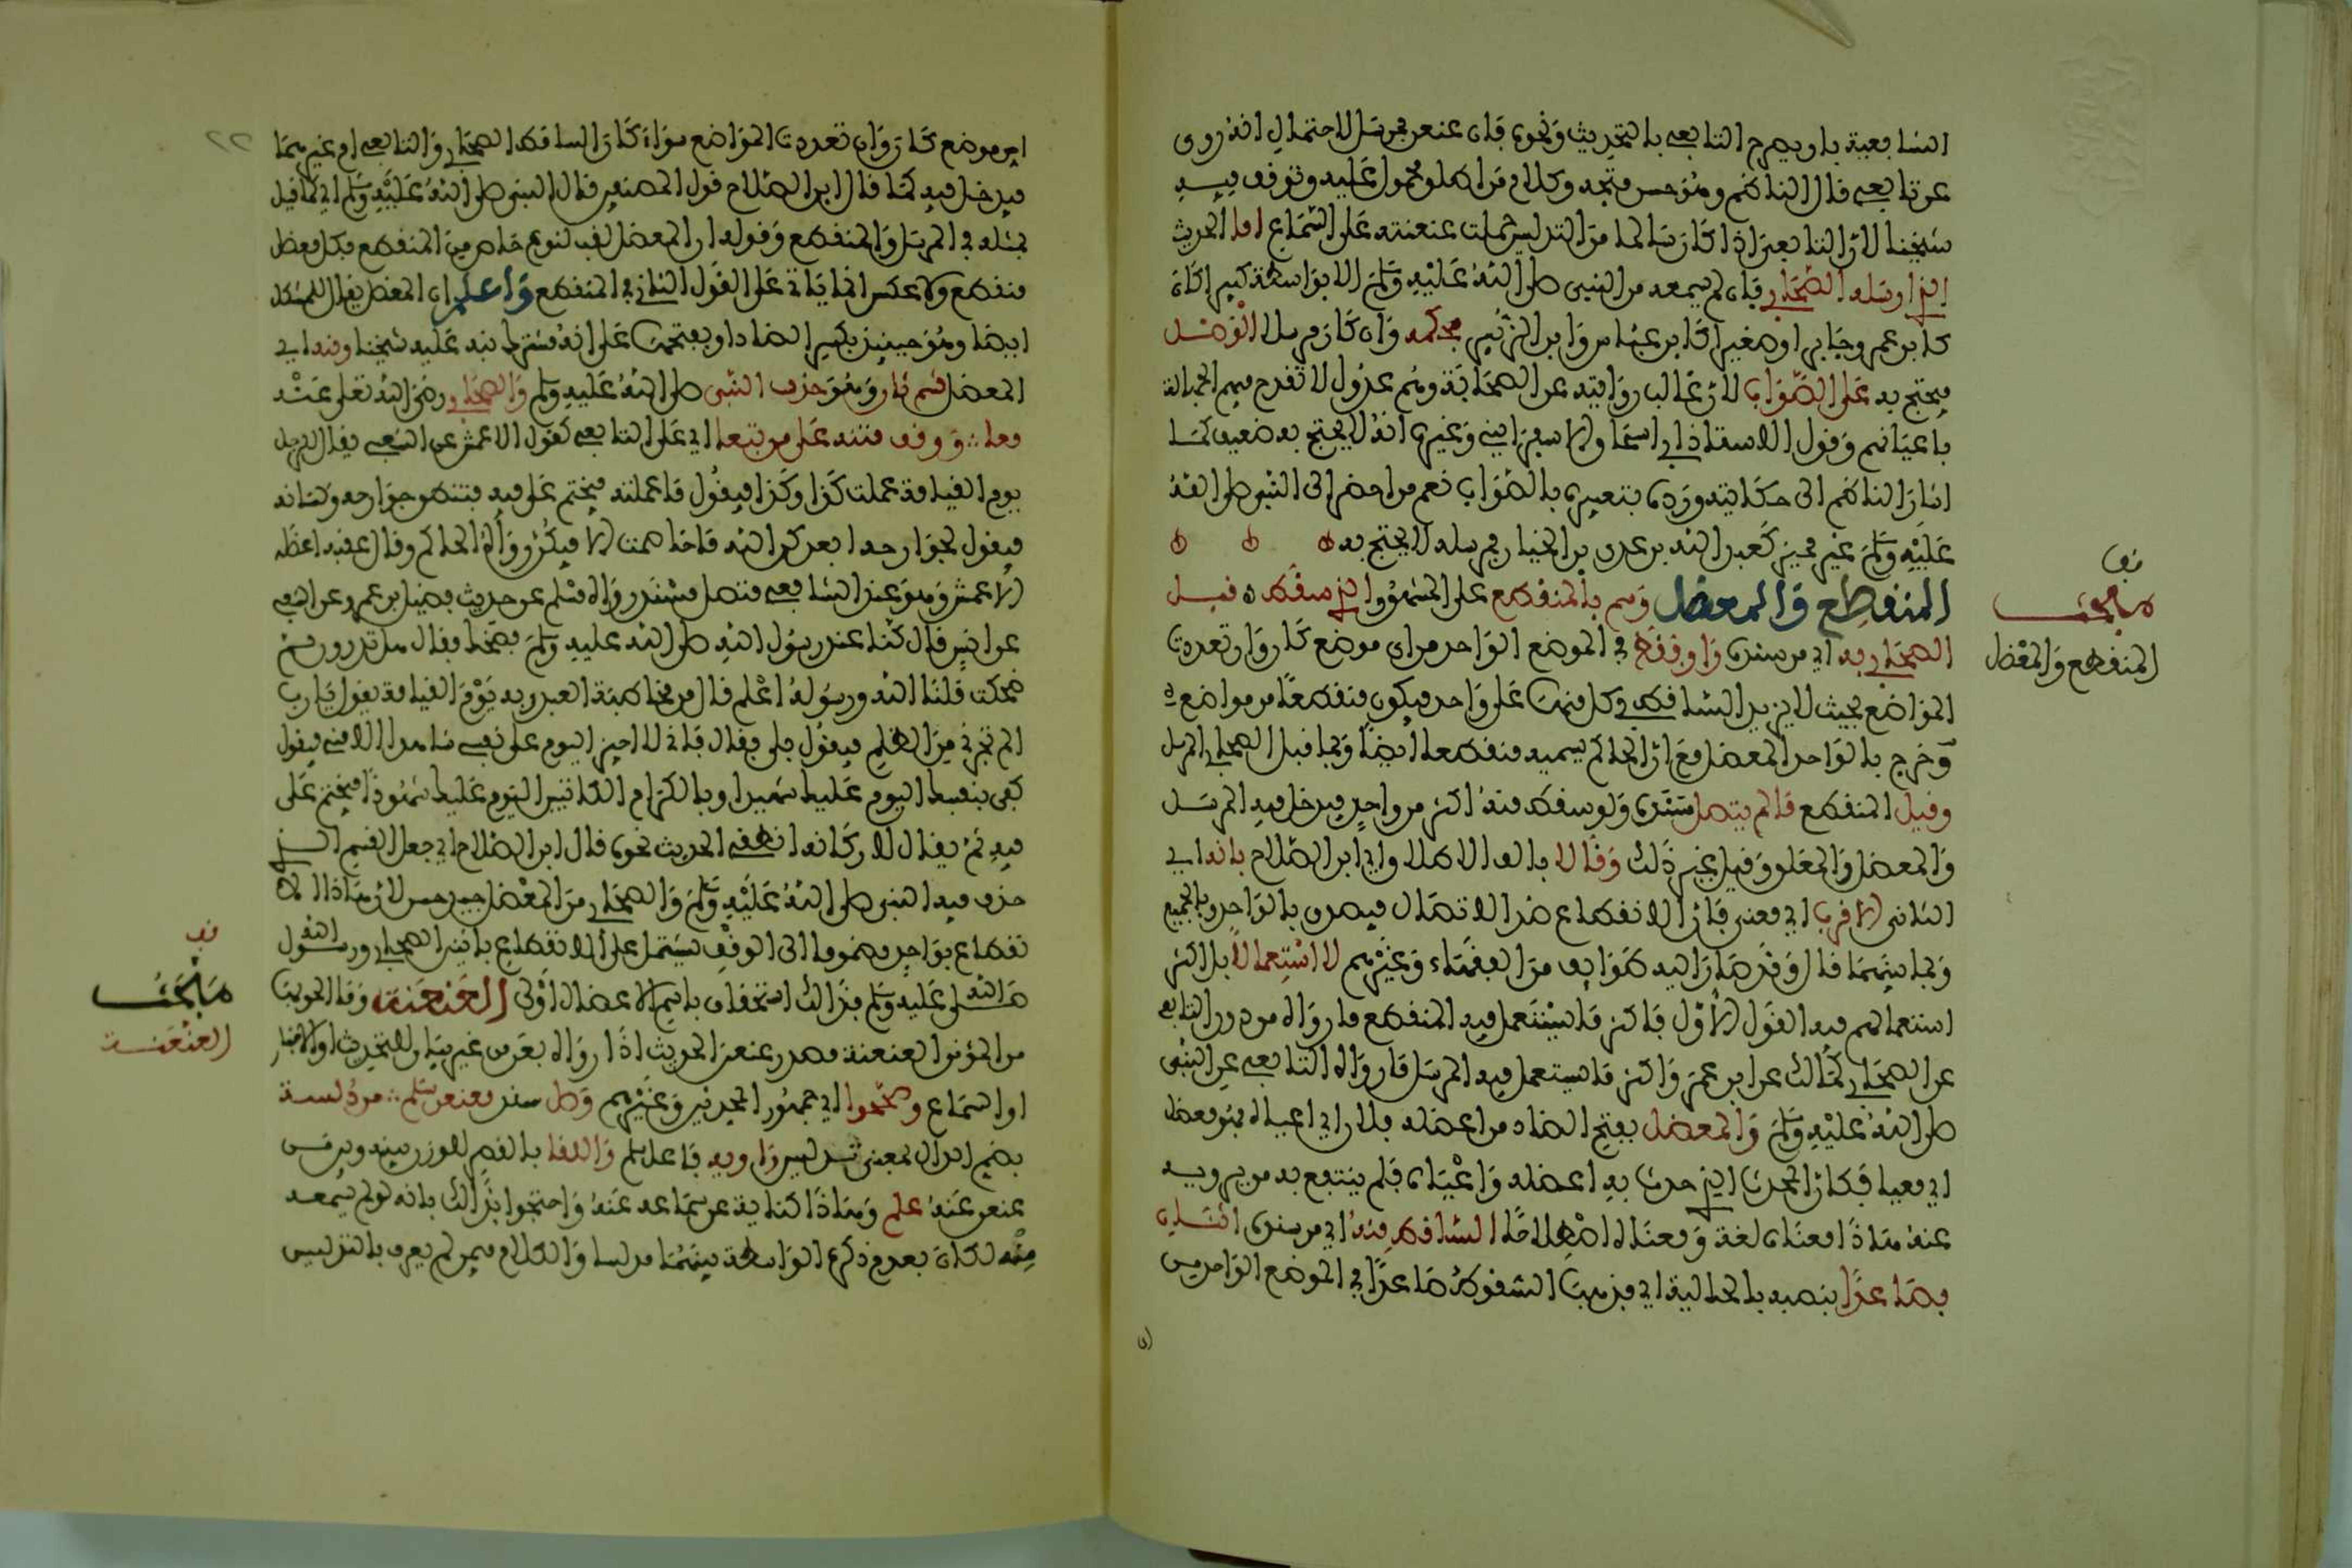 الشافعية بأن يصرح التابعي بالتحديث ونحوه فإن عنعن فمرسل لاحتمال أنه روى
عن تابعي قال الناظم وهو حسن متجه وكلام من أطلق محمول عليه وتوقف فيه
شيخنا لأن التابعي إذا كان سالما من التدليس حملت عنعنته على السماع أما الحديث
الذي أرسله الصحابي فإن لم يسمعه من النبي صلى الله عليه وسلم إلا بواسطة كبيرا كان
كابن عمر وجابر أو صغيرا كابن عباس وابن الزبير فحكمه وإن كان مرسلا الوصل
فيحتج به على الصواب لأن غالب روايته عن الصحابة وهم عدول لا تقدح فيهم الجهالة
بأعيانهم وقول الأستاذ أبي إسحاق الإسفرايني وغيره أنه لا يحتج به ضعيف كما
أشار الناظم إلى حكايته ورده بتعبيره بالصواب نعم من أحضر إلى النبي صلى الله
عليه وسلم غير مميز كعبيد الله بن عدي بن الخيار فمرسله لا يحتج به
المنقطع والمعضل وسم بالمنقطع على المشهور الذي سقط قبل
الصحابي به أي من سنده راو فقط في الموضع الواحد من أي موضع كان وإن تعددت
المواضع بحيث لا يزيد الساقط في كل منها على واحد فيكون منقطعا من مواضع
وخرج بالواحد المعضل مع أن الحاكم يسميه منقطعا أيضا وبما قبل الصحابي المرسل
وقيل المنقطع ما لم يتصل سنده ولو سقط منه أكثر من واحد فيدخل فيه المرسل
والمعضل والمعلق وقيل غير ذلك وقالا بألف الإطلاق أي ابن الصلاح بأنه أي
الثاني الأقرب أي معنى فإن الانقطاع ضد الاتصال فيصدق بالواحد وبالجميع
وبما بينهما قال وقد صار إليه طوائف من الفقهاء وغيرهم لا استعمالا بل أكثر
استعمالهم فيه القول الأول فأكثر ما يستعمل فيه المنقطع ما رواه من دون التابعي
عن الصحابي كمالك عن ابن عمر وأكثر ما يستعمل فيه المرسل ما رواه التابعي عن النبي
صلى الله عليه وسلم والمعضل بفتح الضاد من أعضله فلان أي أعياه فهو معضل
أي معيا فكأن المحدث الذي حدث به أعضله وأعياه فلم ينتفع به من يرويه
عنه هذا معناه لغة ومعناه اصطلاحا الساقط منه أي من سنده اثنان
فصاعدا بنصبه بالحالية أي فذهب السقوط صاعدا في الموضع الواحد من
ما مبحث
المنقطع والمعضل
أي موضع كان وإن تعددت المواضع سواء كان الساقط الصحابي والتابعي أم غيرهما
فيدخل فيه كما قال ابن الصلاح قول المصنفين قال النبي صلى الله عليه وسلم أي كما قيل
بمثله في المرسل والمنقطع وقوله إن المعضل لقب لنوع خاص من المنقطع فكل معضل
منقطع ولا عكس إنما يأتي على القول الثاني في المنقطع واعلم أن المعضل يقال للمشكل
أيضا وهو حينئذ بكسر الضاد أو بفتحها على أنه مشترك نبه عليه شيخنا ومنه أي
المعضل قسم ثان وهو حذف النبي صلى الله عليه وسلم والصحابي رضي الله تعالى عنه
معا ∴ ووقف متنه على من تبعا أي على التابعي كقول الأعمش عن الشعبي يقال للرجل
يوم القيامة عملت كذا وكذا فيقول ما عملته فيختم على فيه فتنطق جوارحه ولسانه
فيقول لجوارحه أبعدكن الله ما خاصمت إلا فيكن رواه الحاكم وقال عقبه أعضله
الأعمش وهو عند الشافعي متصل مسند رواه مسلم عن حديث فضيل بن عمرو عن الشعبي
عن أنس قال كنا عند رسول الله صلى الله عليه وسلم فضحك فقال هل تدرون مم
ضحكت قلنا الله ورسوله أعلم قال من مخاطبة العبد ربه يوم القيامة يقول يا رب
ألم تجرني من الظلم فيقول بلى فيقال فإني لا أجيز اليوم على نفسي شاهدا إلا مني فيقول
كفى بنفسك اليوم عليك شهيدا وبالكرام الكاتبين اليوم عليك شهودا فيختم على
فيه ثم يقال لأركانه انطقي الحديث نحوه قال ابن الصلاح أي جعل القسم الذي
حذف فيه النبي صلى الله عليه وسلم والصحابي من المعضل جيد حسن لأن هذا الا
نقطاع بواحد مضموما إلى الوقف يشتمل على الانقطاع باثنين الصحابي ورسول الله
صلى الله عليه وسلم فذلك استحقاق باسم الإعضال أولى العنعنة وما ألحق بها
من المؤنن العنعنة مصدر عنعن الحديث إذا رواه بعن من غير بيان للتحديث أو الإخبار
أو السماع وصححوا أي جمهور المحدثين وغيرهم وصل سند معنعن سلم ∴ من دلسة
بضم الدال بمعنى تدليس راويه فاعل سلم واللقا بالقصر للوزن بينه وبين من
عنعن عنه علم وهذا كناية عن سماعه عنه واحتجوا بذلك بأنه لو لم يسمعه
منه لكان بعدم ذكره الواسطة بينهما مدلسا والكلام فيمن لم يعرف بالتدليس
مبحث
العنعنة